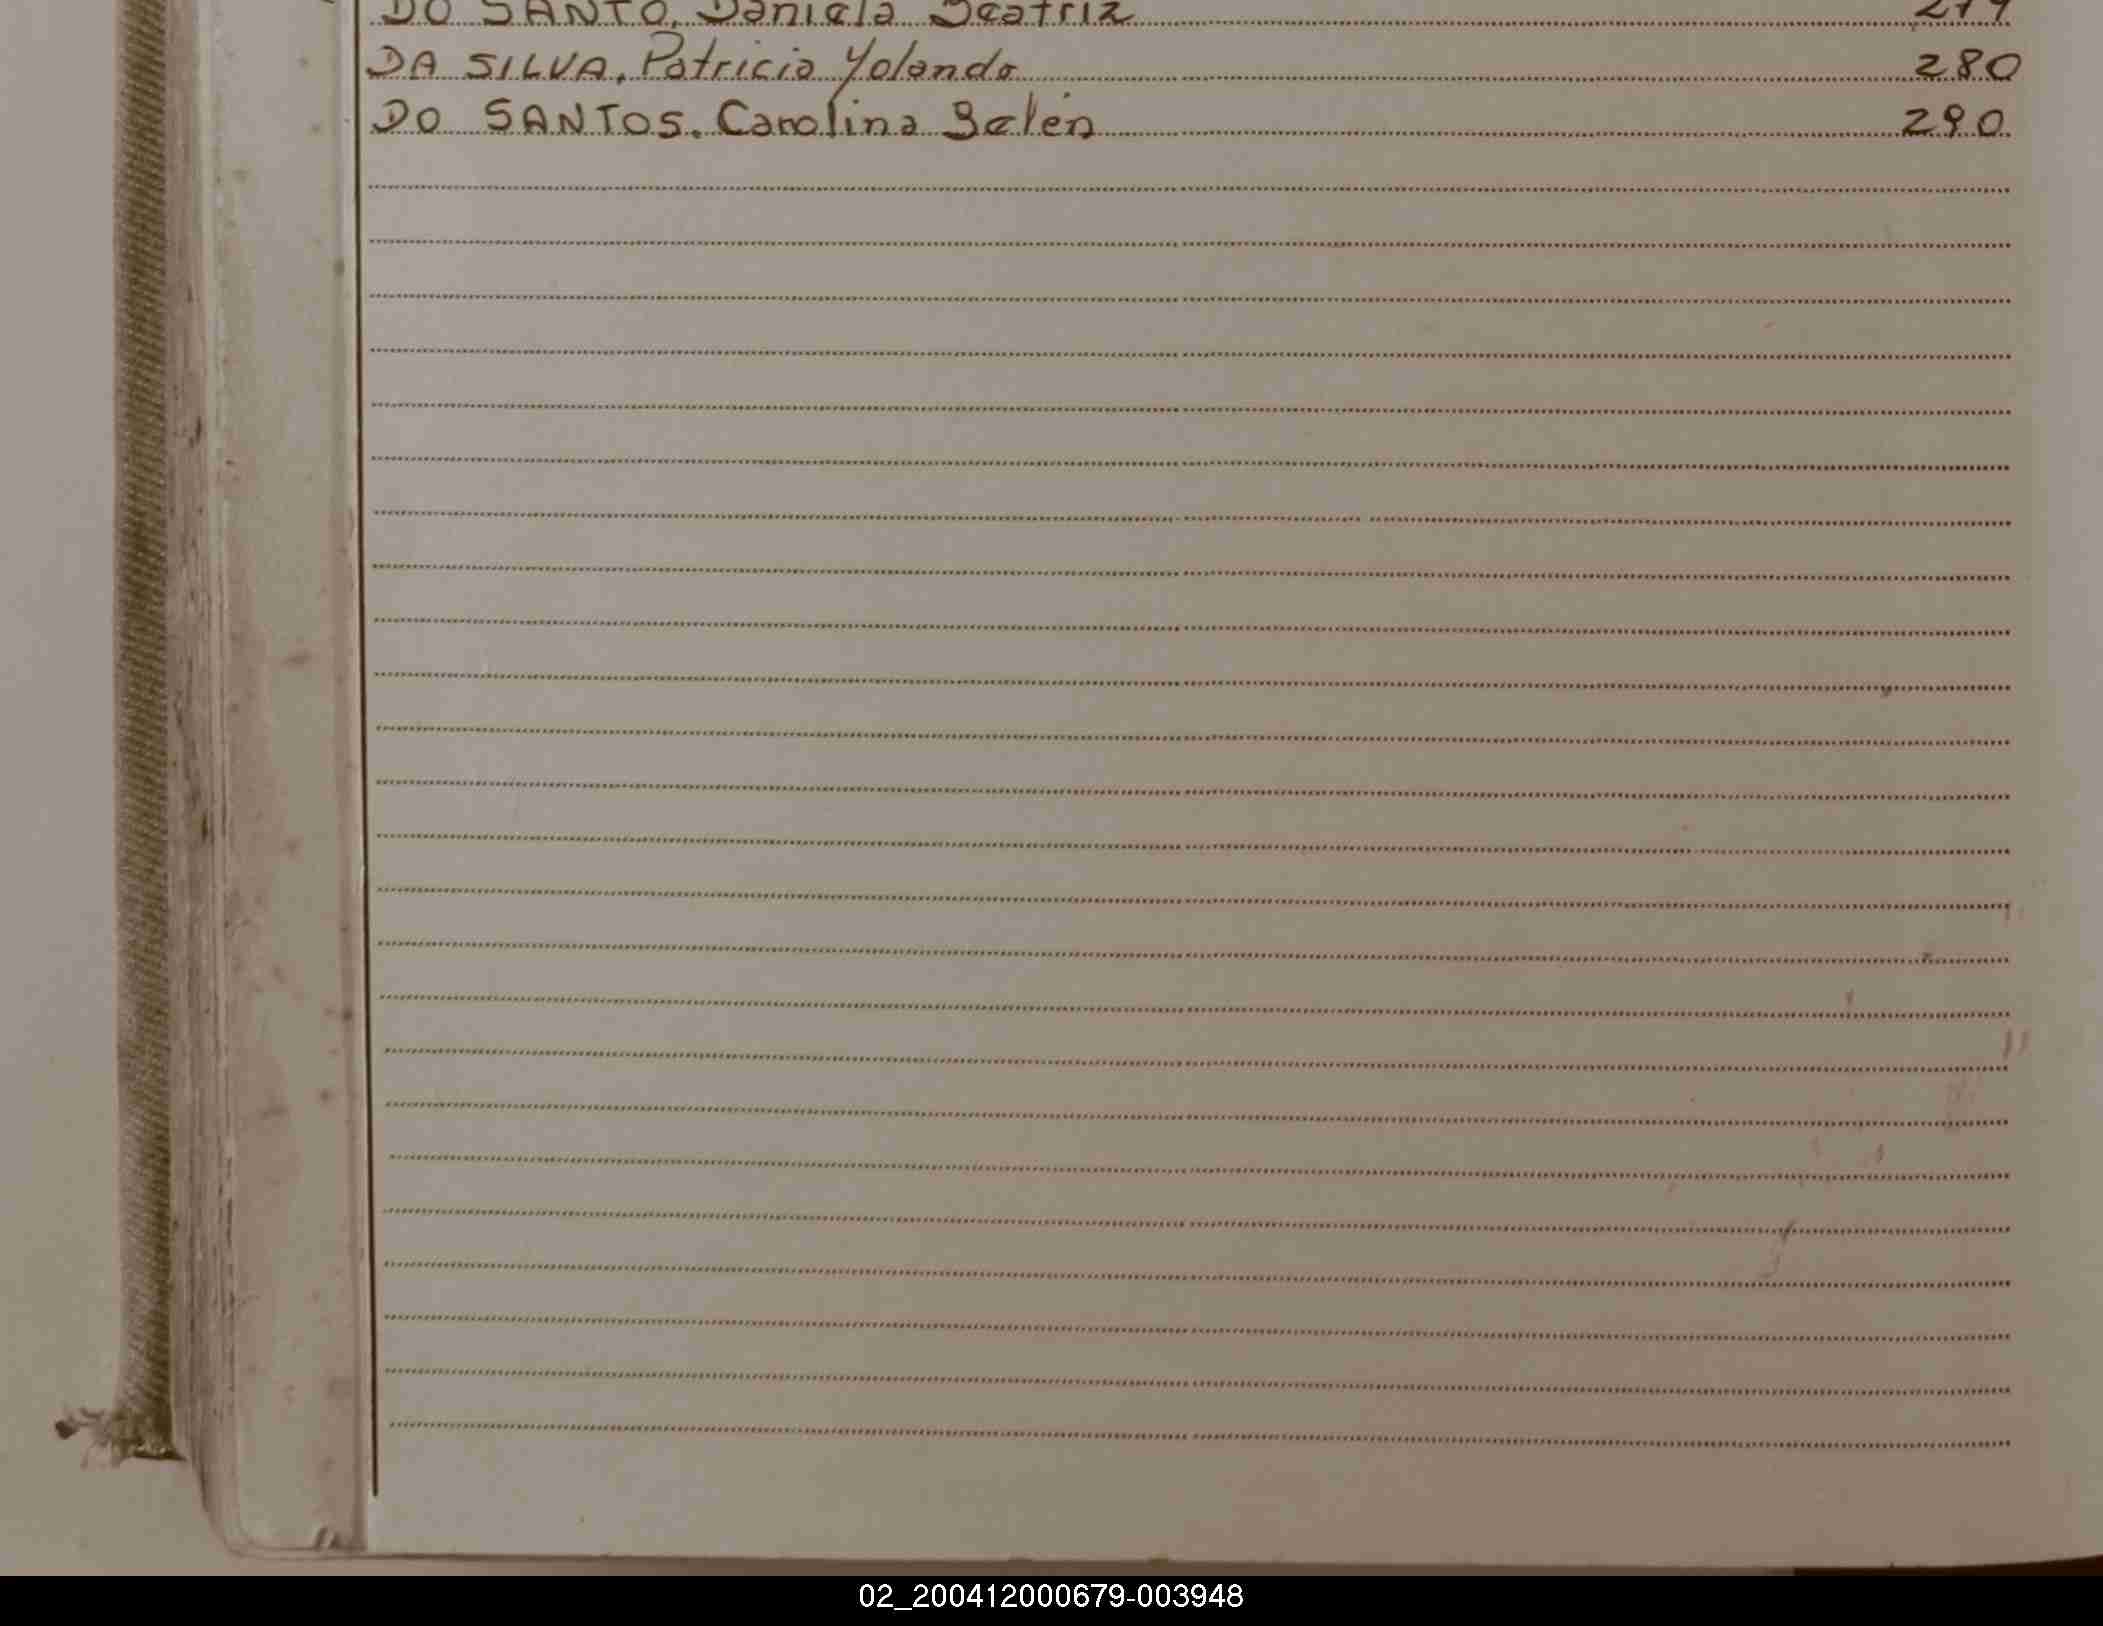 DO SANTO, Daniela Beatriz 279
DA SILVA, Patricia Yolanda 280
DO SANTOS, Carolina Belén 290
02_200412000679-003948